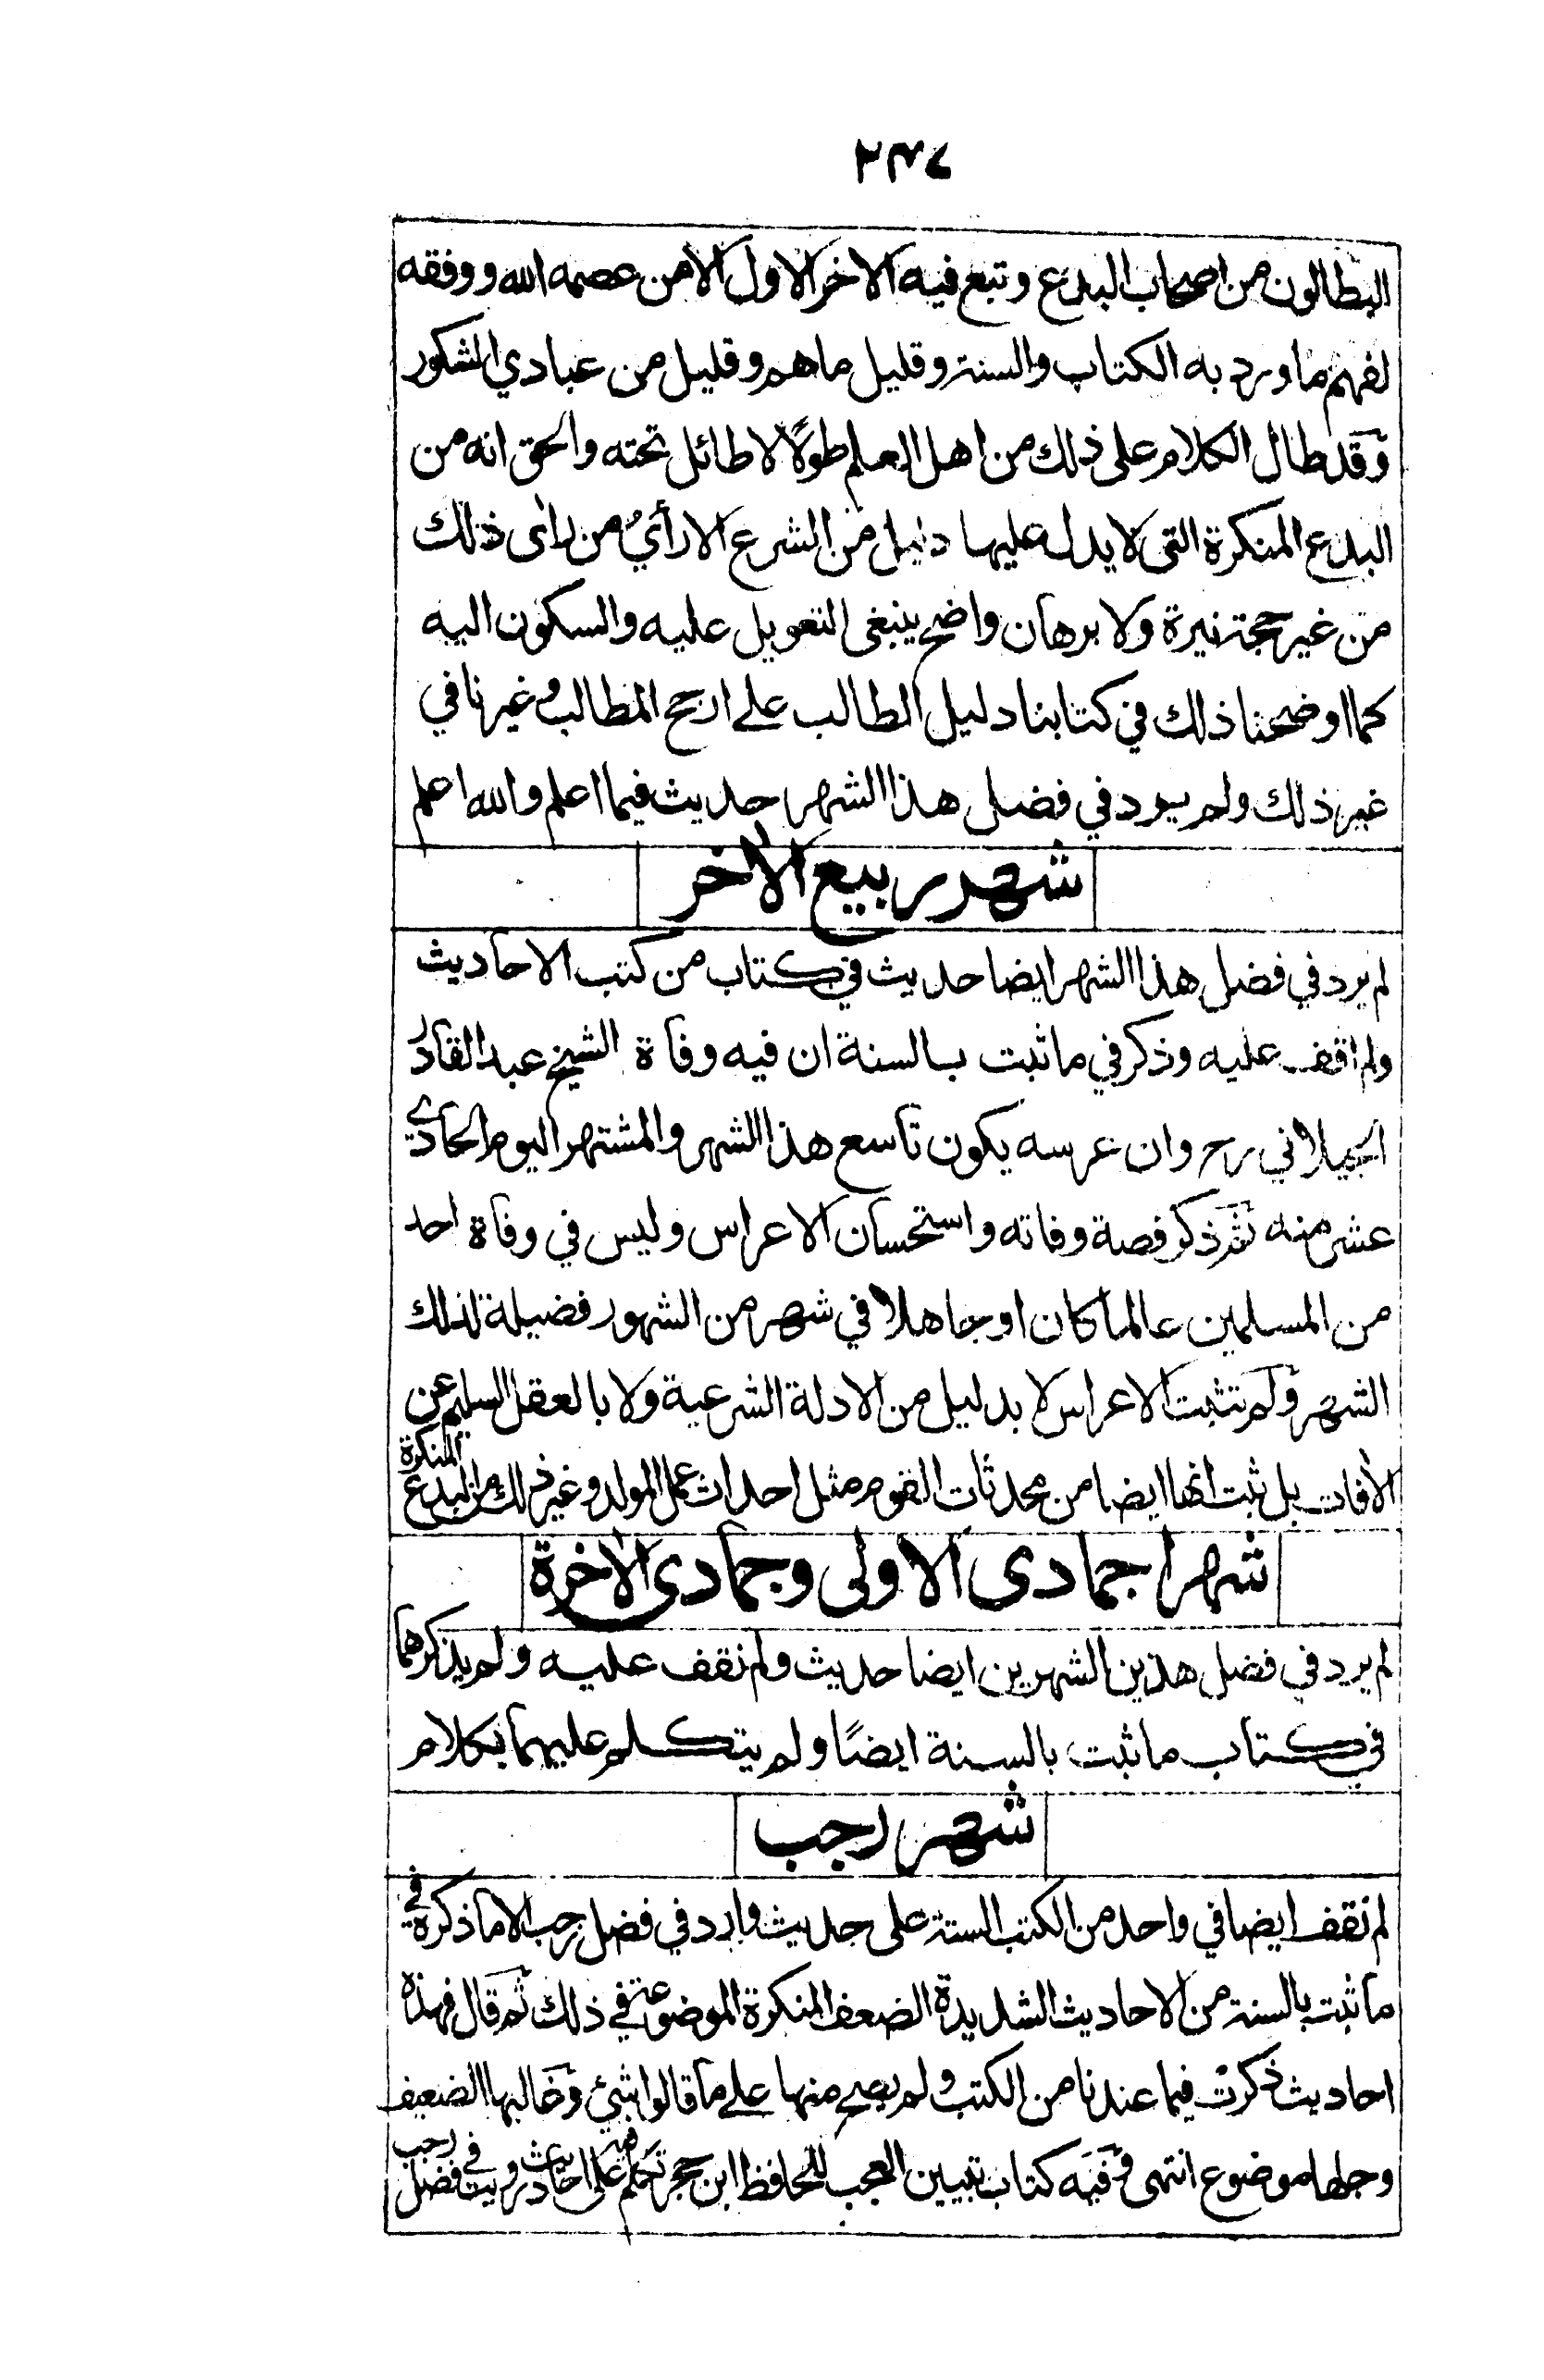 ۲۳۷
البطالون من اصحاب البدع وتبع فيه الاخر الاول الا من عصمه الله ووفقه
لفهم ما ورد به الكتاب والسنة وقليل ما هم وقليل من عبادي الشكور
وقد طال الكلام على ذلك من اهل العلم طولا لا طائل تحته والحق انه من
البدع المنكرة التى لا يدل عليها دليل من الشرع الا رأيُ من راى ذلك
من غير حجة نيرة ولا برهان واضح ينبغى التعويل عليه والسكون اليه
كما اوضحنا ذلك في كتابنا دليل الطالب على ارجح المطالب وغيرنا في
غير ذلك ولم يرد في فضل هذا الشهر حديث فيما اعلم والله اعلم
شهر ربيع الاخر
لم يرد في فضل هذا الشهر ايضا حديث في كتاب من كتب الاحاديث
ولم اقف عليه وذكر في ما ثبت بالسنة ان فيه وفاة الشيخ عبد القادر
الجيلاني رح وان عرسه يكون تاسع هذا الشهر والمشتهر اليوم الحادي
عشر منه ثم ذكر قصة وفاته واستحسان الاعراس وليس في وفاة احد
من المسلمين عالما كان او جاهلا في شهر من الشهور فضيلة لذلك
الشهر ولم تثبت الاعراس لا بدليل من الادلة الشرعية ولا بالعقل السليم عن
الأفات بل ثبت انها ايضا من محدثات القوم مثل احداث عمل المولد وغير ذلك من البدع المنكرة
شهرا جمادى الاولى وجمادى الاخرة
لم يرد في فضل هذين الشهرين ايضا حديث ولم نقف عليه ولم يذكرهما
في كتاب ما ثبت بالسنة ايضًا ولم يتكلم عليهما بكلام
شهر رجب
لم نقف ايضا في واحد من الكتب الستة على حديث وارد في فضل رجب الا ما ذكره في
ما ثبت بالسنة من الاحاديث الشديدة الضعف المنكرة الموضوعة في ذلك ثم قال فهذه
احاديث ذكرت فيما عندنا من الكتب ولم يصح منها على ما قالوا شئ وغالبها الضعيف
وجلها موضوع انتهى وفيه كتاب تبيين العجب للحافظ ابن حجر تكلم فيه على احاديث رويت في فضل رجب